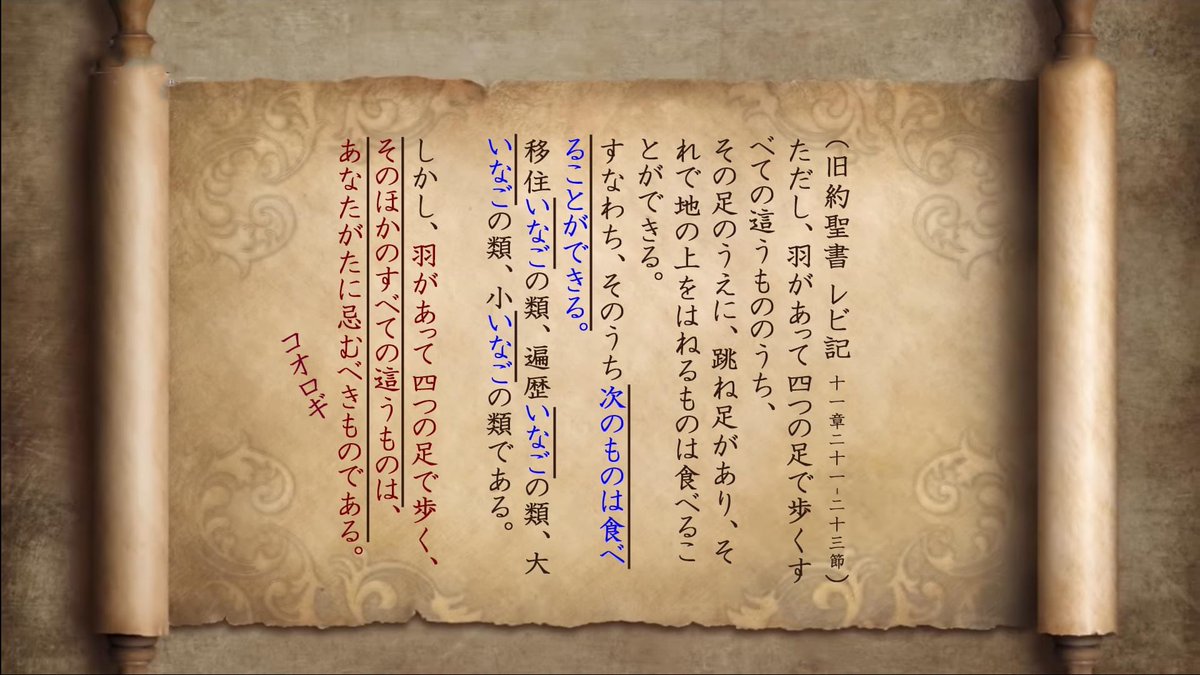 (旧約聖書 レビ記 十一章二十一-二十三節)
ただし、羽があって四つの足で歩くす
べての這うもののうち、
その足のうえに、跳ね足があり、そ
れで地の上をはねるものは食べるこ
とができる。
すなわち、そのうち次のものは食べ
ることができる。
移住いなごの類、遍歴いなごの類、大
いなごの類、小いなごの類である。
しかし、羽があって四つの足で歩く、
そのほかのすべての這うものは、
あなたがたに忌むべきものである。
コオロギ